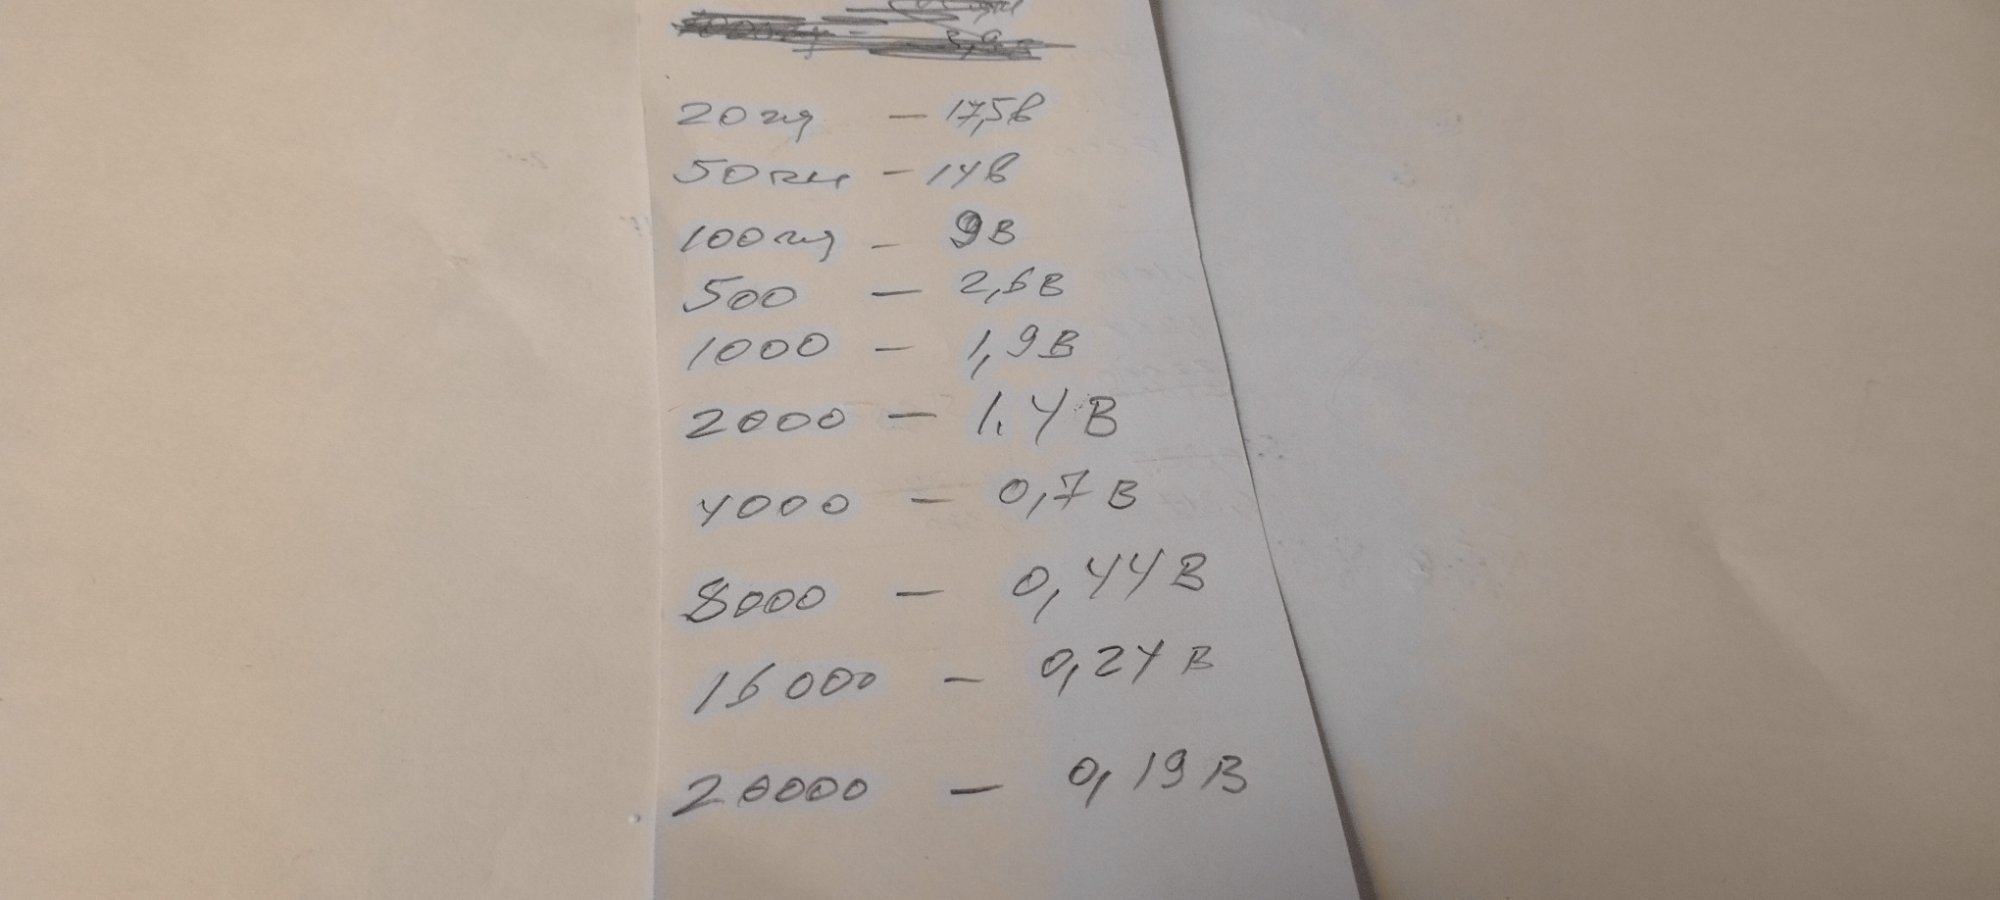 20гц — 17,5В
50гц - 14В
100гц - 9В
500 — 2,6В
1000 - 1,9В
2000 — 1.4 В
4000 - 0,7 В
8000 — 0,44 В
16000 - 0,24 В
20000 — 0,19 В